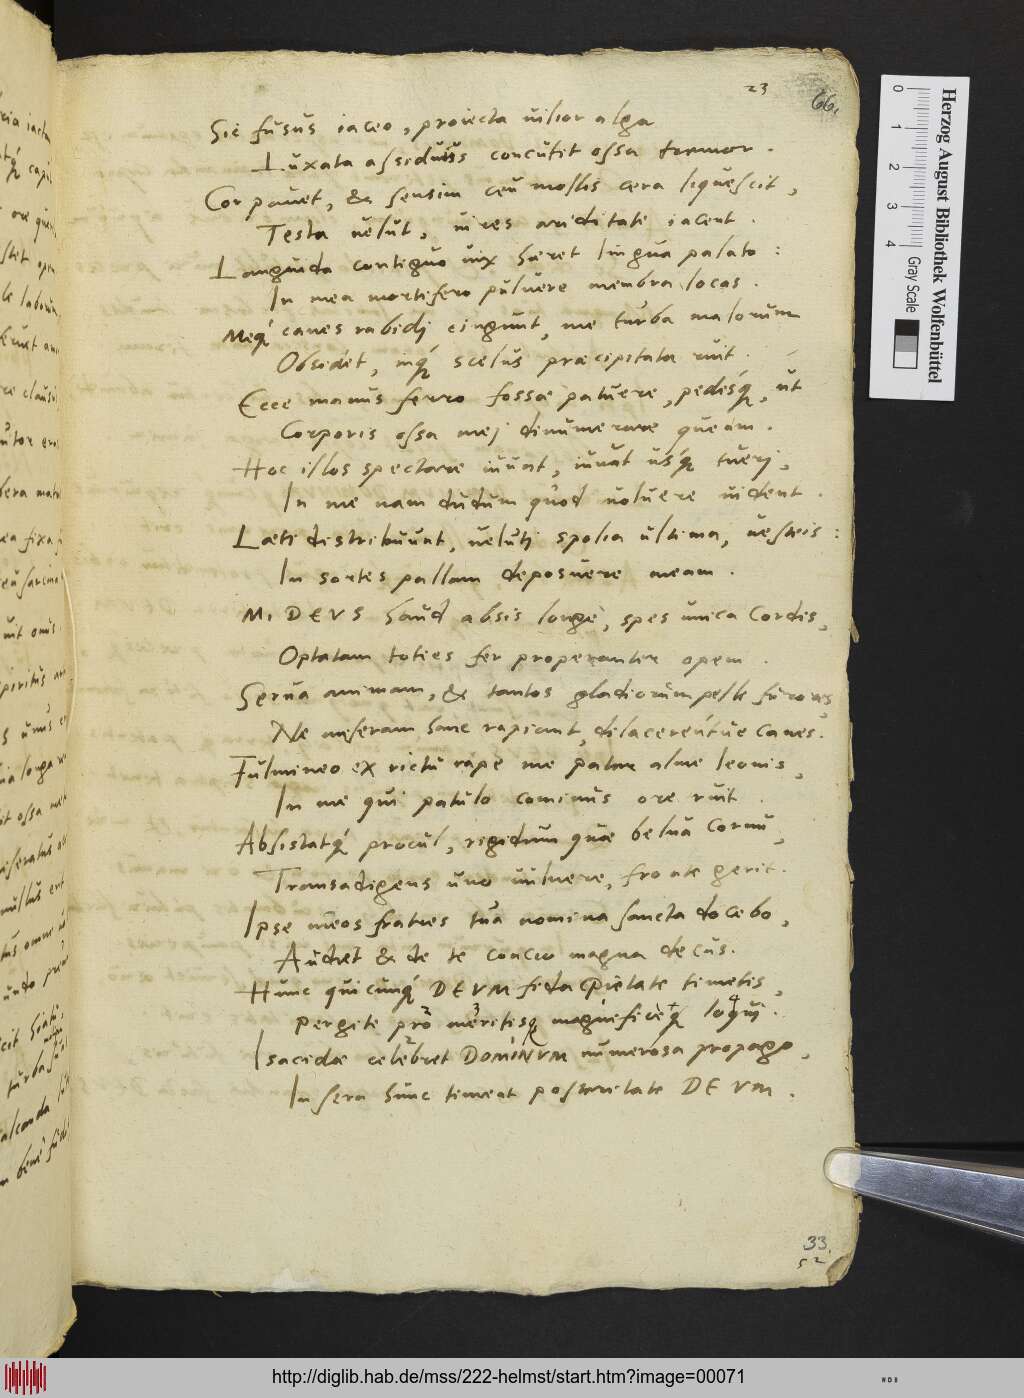 23
66.
Sic fusus iaceo, proiecta uilior alga
Luxata assiduus concutit ossa tremor.
Cor pauet, & sensim ceu mollis cera liquescit,
Testa uelut, uires ariditate iacent.
Languida contiguo uix haeret lingua palato:
In mea mortifero puluere membra locas.
Meq́ canes rabidj cingunt, me turba malorum
Obsidet, inq́ scelus praecipitata ruit.
Ecce manus ferro fossae patuere, pedesq́, ut
Corporis ossa mej dinumerare queam.
Hoc illos spectare iuuat, iuuat usq́ tuerj,
In me nam dudum quod uoluere uident.
Laeti distribuunt, uelutj spolia ultima, uesteis:
In sortes pallam deposuere meam.
MI DEVS haud absis longè, spes unica cordis,
Optatam toties fer properanter opem.
Serua animam, & tantos gladiorum pelle furores,
Ne miseram hanc rapiant, dilacerentúe canes.
Fulmineo ex rictu rape me pater alme leonis,
In me qui patulo cominus ore ruit.
Absistatq́ procul, rigidum quae belua cornu,
Transadigens uno uulnere, fronte gerit.
Ipse meos fratres tua nomina sancta docebo,
Audiet & de te concio magna decus.
Hunc quicunq́ DEVM fida pietate timetis,
Pergite pro meritisq magnificeq́ loqui.
Isacidae celebret DOMINVM numerosa propago,
In sera hunc timeat posteritate DEVM.
33.
52
Herzog August Bibliothek Wolfenbüttel
0 1 2 3 4
Gray Scale
http://diglib.hab.de/mss/222-helmst/start.htm?image=00071